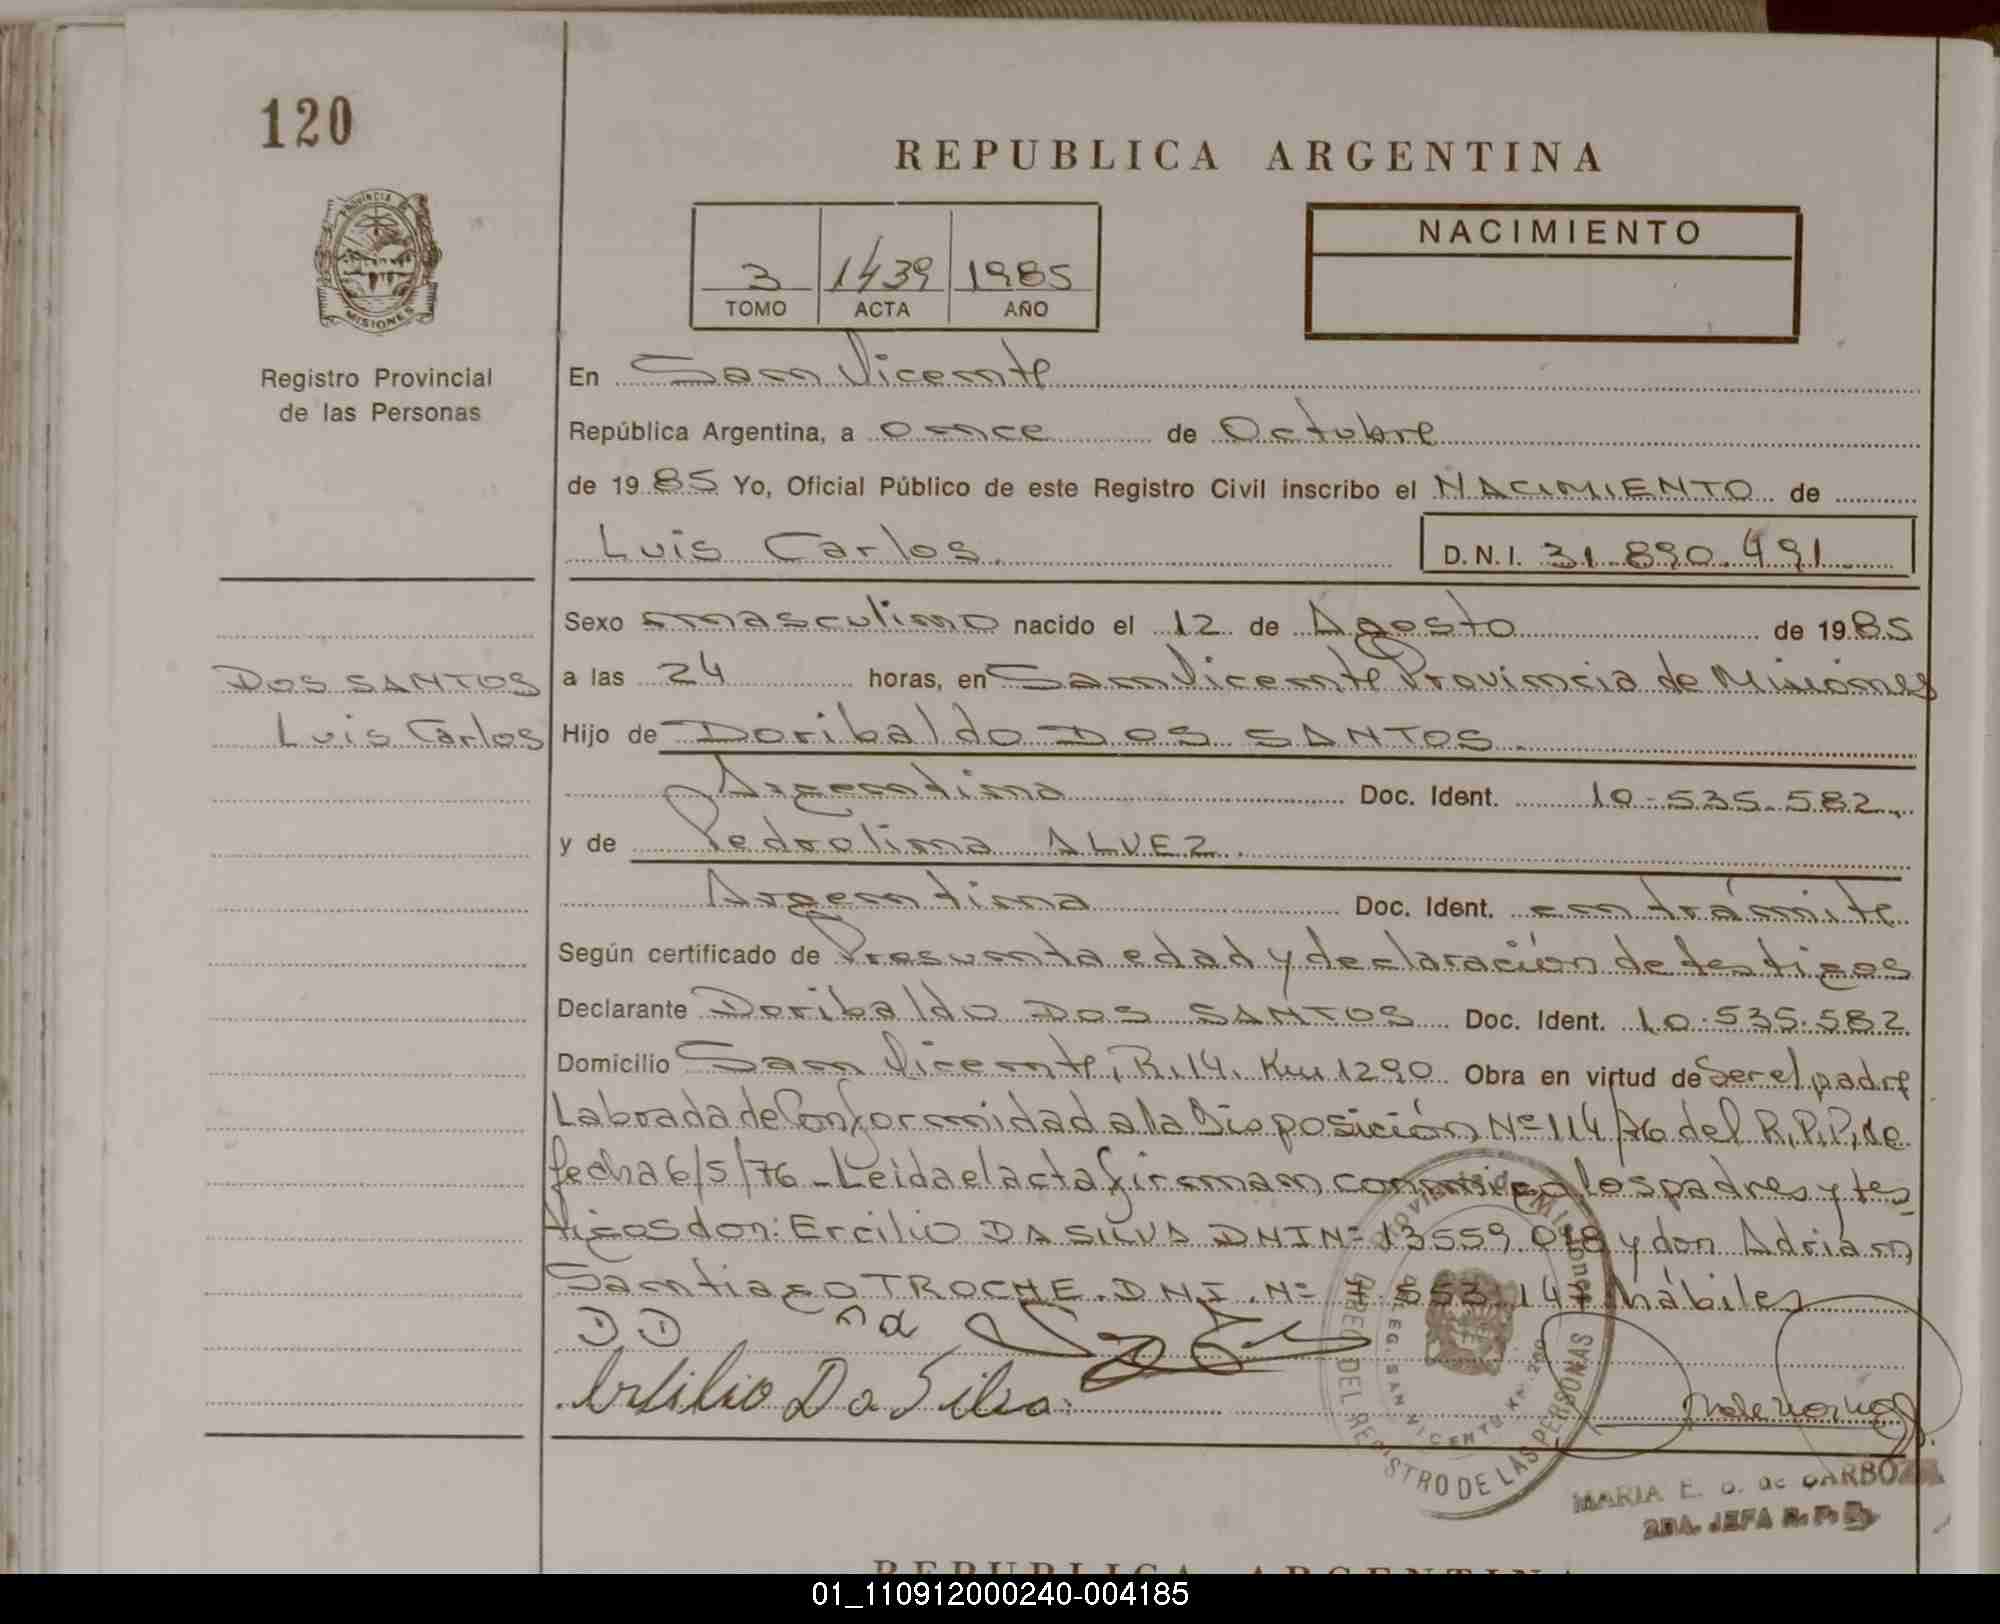 120
REPUBLICA ARGENTINA
PROVINCIA DE
MISIONES
3 1439 1985
TOMO ACTA AÑO
NACIMIENTO
Registro Provincial
de las Personas
En San Vicente
República Argentina, a once de Octubre
de 1985 Yo, Oficial Público de este Registro Civil inscribo el NACIMIENTO de
Luis Carlos. D.N.I. 31.890.491
Sexo masculino nacido el 12 de Agosto de 1985
DOS SANTOS
Luis Carlos
a las 24 horas, en San Vicente Provincia de Misiones
Hijo de Doribaldo DOS SANTOS.
Argentina Doc. Ident. 10.535.582
y de Pedrolina ALVEZ.
Argentina Doc. Ident. en trámite
Según certificado de Presunta edad y declaración de testigos
Declarante Doribaldo DOS SANTOS Doc. Ident. 10.535.582
Domicilio San Vicente, R.14. Km 1290 Obra en virtud de Ser el padre
Labrada de Conformidad a la Disposición Nº 114/76 del R.P.P. de
fecha 6/5/76 - Leida el acta firman conmigo los padres y tes
tigos don: Ercilio DA SILVA DNI Nº 13559.018 y don Adrian
Santiago TROCHE. D.N.I. Nº 7.553.147 hábiles
DD
Ersilio Da Silva
DEL REGISTRO DE LAS PERSONAS
MARIA E. G. de CARBO
2DA. JEFA R. P. P.
REPUBLICA ARGENTINA
01_110912000240-004185